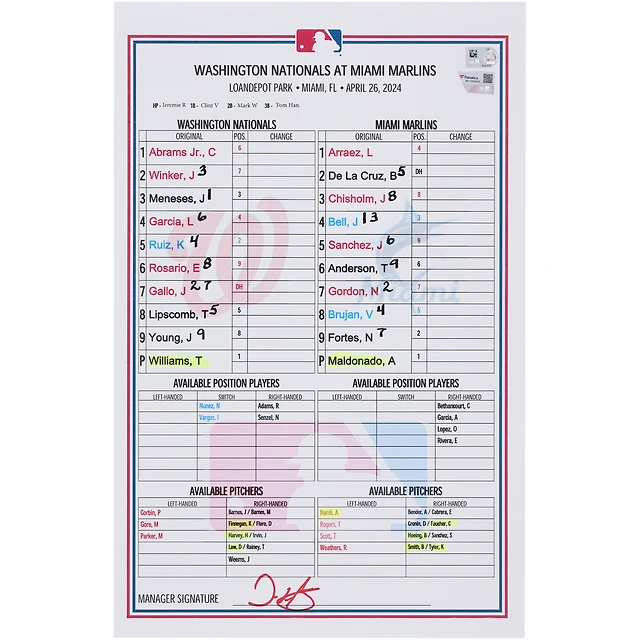 WASHINGTON NATIONALS AT MIAMI MARLINS
LOANDEPOT PARK • MIAMI, FL • APRIL 26, 2024
HP - Jeremie R 1B - Clint V 2B - Mark W 3B - Tom Han
WASHINGTON NATIONALS
ORIGINAL POS. CHANGE
1 Abrams Jr., C 6
2 Winker, J 3 7
3 Meneses, J 1 3
4 Garcia, L 6 4
5 Ruiz, K 4 2
6 Rosario, E 8 9
7 Gallo, J 27 DH
8 Lipscomb, T 5 5
9 Young, J 9 8
P Williams, T 1
MIAMI MARLINS
ORIGINAL POS. CHANGE
1 Arraez, L 4
2 De La Cruz, B 5 DH
3 Chisholm, J 8 8
4 Bell, J 13 3
5 Sanchez, J 6 9
6 Anderson, T 9 6
7 Gordon, N 2 7
8 Brujan, V 4 5
9 Fortes, N 7 2
P Maldonado, A 1
Miami
AVAILABLE POSITION PLAYERS
LEFT-HANDED SWITCH RIGHT-HANDED
Nunez, N Adams, R
Vargas, I Senzel, N
AVAILABLE POSITION PLAYERS
LEFT-HANDED SWITCH RIGHT-HANDED
Bethancourt, C
Garcia, A
Lopez, O
Rivera, E
AVAILABLE PITCHERS
LEFT-HANDED RIGHT-HANDED
Corbin, P Barnes, J / Barnes, M
Gore, M Finnegan, K / Floro, D
Parker, M Harvey, H / Irvin, J
Law, D / Rainey, T
Weems, J
AVAILABLE PITCHERS
LEFT-HANDED RIGHT-HANDED
Nardi, A Bender, A / Cabrera, E
Rogers, T Cronin, D / Faucher, C
Scott, T Hoeing, B / Sanchez, S
Weathers, R Smith, B / Tyler, K
MANAGER SIGNATURE